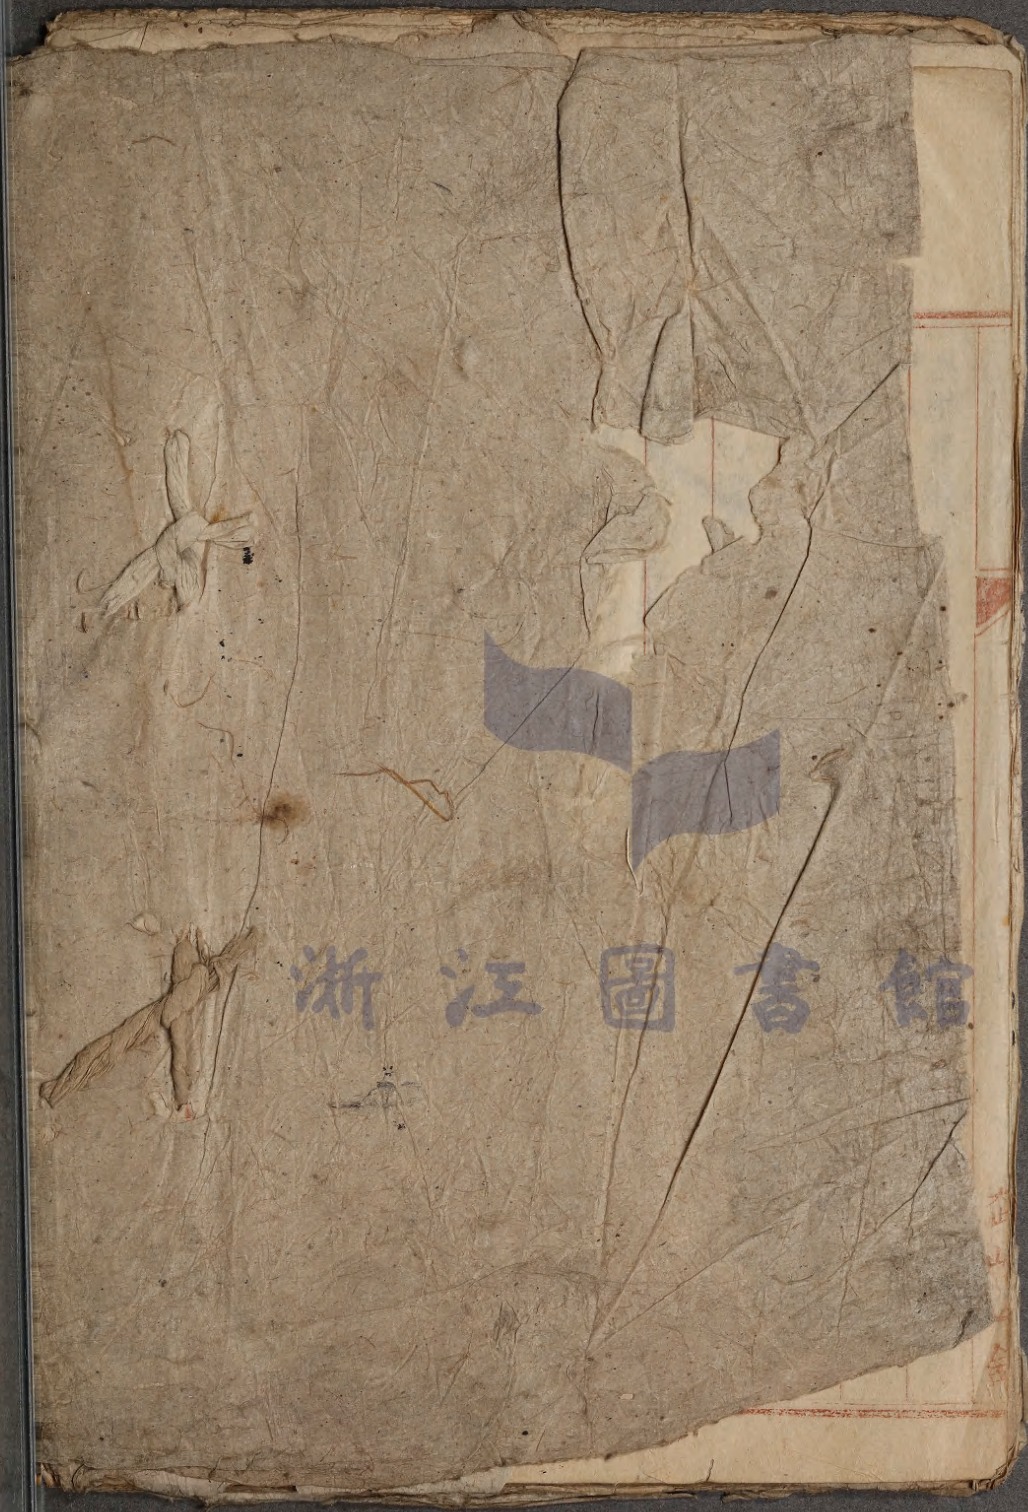 浙江圖書館